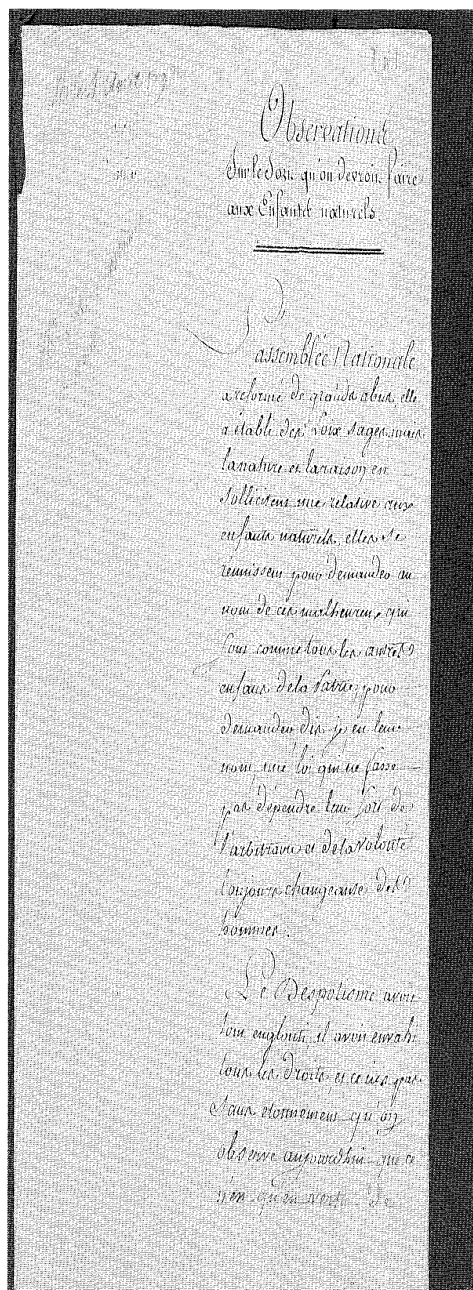 Observations
Sur le Sort qu'on devroit faire
aux Enfants naturels.
L'assemblée Nationale
a reformé de grands abus, elle
a établi des Loix sages, mais
la nature et la raison en
sollicitent une relative aux
enfants naturels, elles se
reunissent pour demander au
nom de ces malheureux, qui
sont comme tous les autres
enfans de la Patrie, pour
demander dis-je, en leur
nom, une loi qui ne fasse
pas dépendre leur sort de
l'arbitraire et de la volonté
toujours changeante des
hommes.
Le Despotisme avoit
tout englouti, il avoit envahi
tous les droits, et ce n'est pas
sans etonnement qu'on
observe aujourdhui que ce
n'est qu'en vertu de